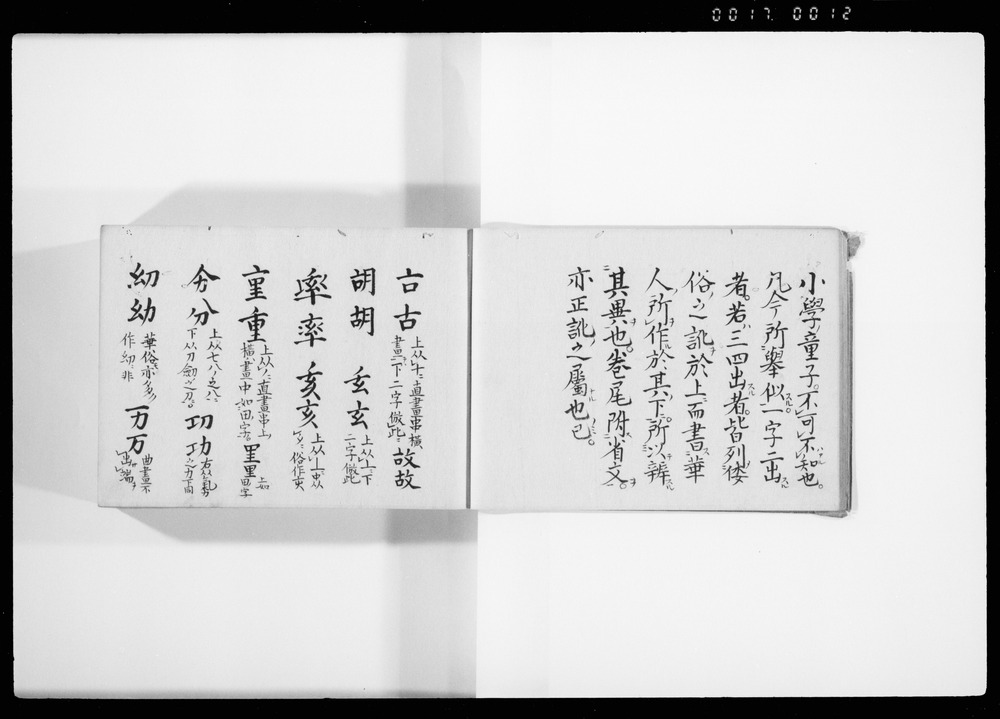 0017 0012
小學童子不可不知也
凡今所擧似一字二出
者若三四出者皆列倭
俗之訛於上而書華
人所作於其下所以辨
其異也卷尾附省文
亦正訛之屬也已
古古 上从十直畫串橫畫下二字倣此 故故
胡胡 玄玄 上从亠下二字倣此
率率 亥亥
重重 橫畫中如田字 里里 上如田字
分分 上从七八之八下从刀劒之刀 功功
幼幼 華俗亦多作㓜非 万万 曲畫不出端